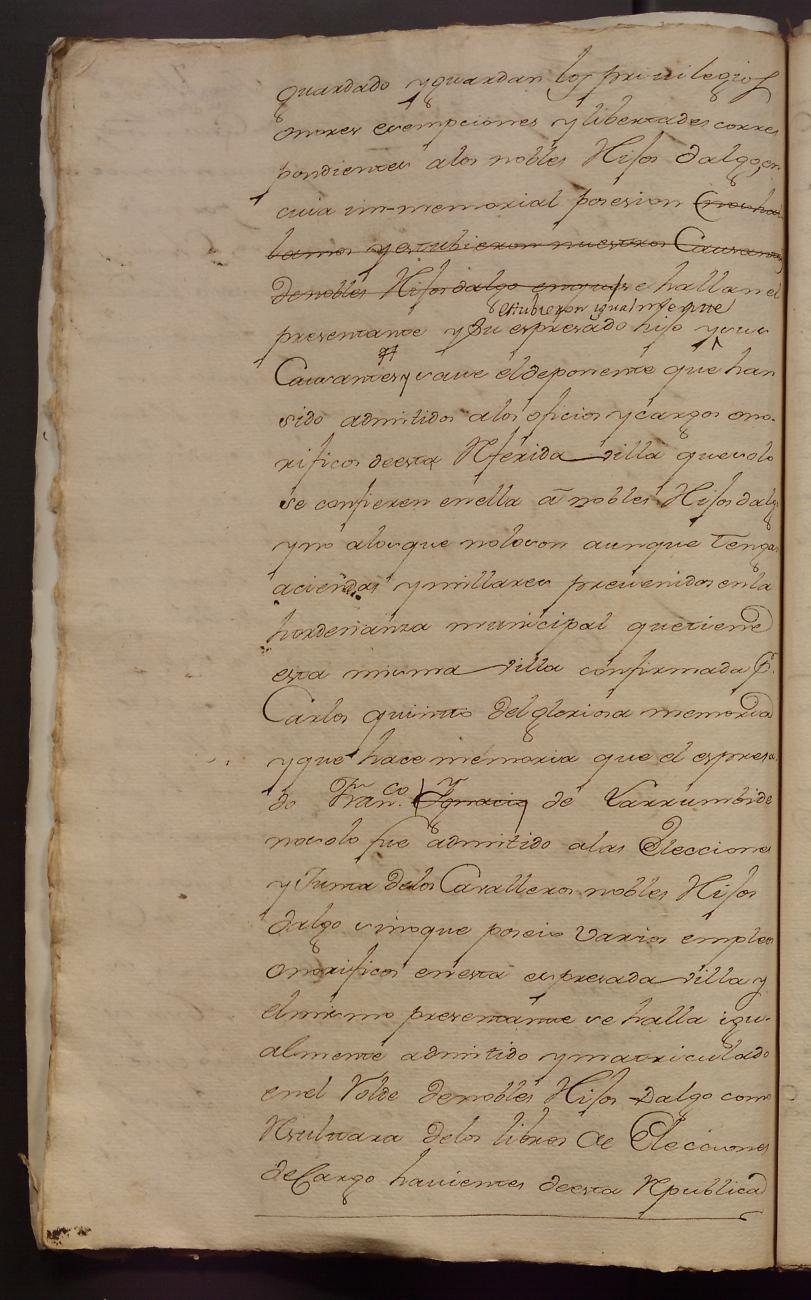 guardado y guardan los priuilegios
onores exempciones y libertades corres
pondientes a los nobles Hijos dalgo, en
cuia im-memorial posesion
y estubieron nuestros Causantes
de nobles Hijosdalgo en que se hallan el
estubieron igualmente que
presentante y su espresado hijo y sus
Causantes y save el deponente que han
sido admitidos a los oficios y cargos ono-
rificos de esta Referida villa que solo
se confieren en ella â nobles Hijos dalgo
y no a los que no lo son aunque tengan
aciendas y millares preuenidos en la
hordenanza municipal que tiene
esta misma villa confirmada Pr.
Carlos quinto de gloriosa memoria
y que hace memoria que el espresa-
do Fran.co Ignacio de Larrumbide
no solo fue admitido a las Elecciones
y Junta de los Cavalleros nobles Hijos
dalgo sino que poseio varios empleos
onorificos en esta espresada villa y
el mismo presentante se halla igu-
almente admitido y matriculado
en el Rolde de nobles Hijos dalgo como
Resultara de los libros de Elecciones
de Cargo havientes de esta Republica